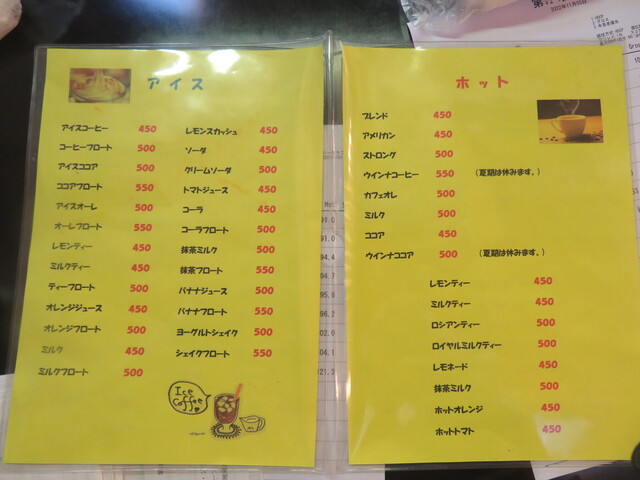 アイス
アイスコーヒー 450
コーヒーフロート 500
アイスココア 500
ココアフロート 550
アイスオーレ 500
オーレフロート 550
レモンティー 450
ミルクティー 450
ティーフロート 500
オレンジジュース 450
オレンジフロート 500
ミルク 450
ミルクフロート 500
レモンスカッシュ 450
ソーダ 450
クリームソーダ 500
トマトジュース 450
コーラ 450
コーラフロート 500
抹茶ミルク 500
抹茶フロート 550
バナナジュース 500
バナナフロート 550
ヨーグルトシェイク 500
シェイクフロート 550
Ice
Coffee
ホット
ブレンド 450
アメリカン 450
ストロング 500
ウインナコーヒー 550 (夏期は休みます。)
カフェオレ 500
ミルク 500
ココア 450
ウインナココア 500 (夏期は休みます。)
レモンティー 450
ミルクティー 450
ロシアンティー 500
ロイヤルミルクティー 500
レモネード 450
抹茶ミルク 500
ホットオレンジ 450
ホットトマト 450